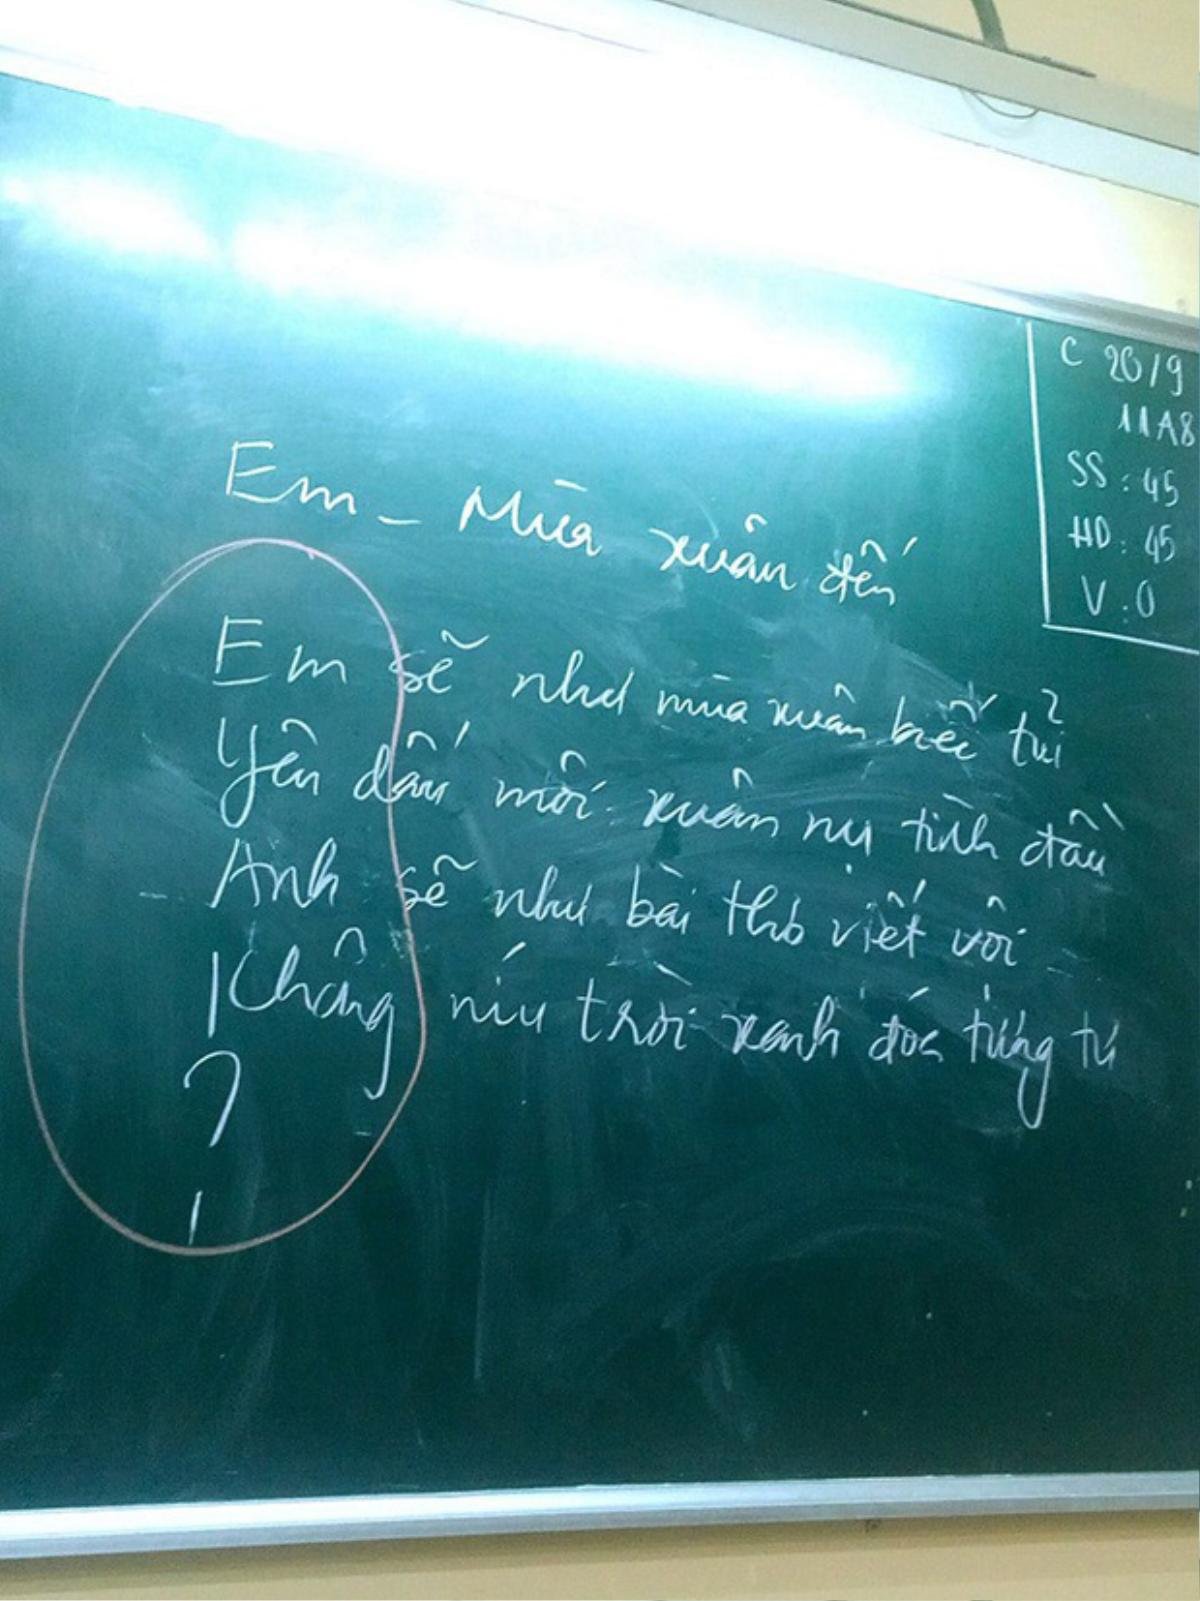 C 20/9
11A8
SS : 45
HD : 45
V : 0
Em - Mùa xuân đến
Em sẽ như mùa xuân biết tủi
Yên dấu môi xuân nụ tình đầu
Anh sẽ như bài thơ viết vội
Không níu trời xanh đóa từng tư
?